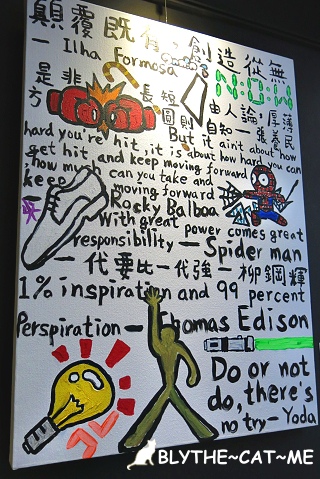 顛覆既有,創造從無
— Ilha Formosa
N:O:W
是非 長短 由人論,厚薄
方圓則自知 — 張養民
But it ain't about how
hard you're hit, it is about how hard you can
get hit, and keep moving forward
, how much can you take and
keep moving forward —
Rocky Balboa
With great power comes great
responsibility — Spider man
一代要比一代強 — 柳鋼輝
1% inspiration and 99 percent
Perspiration — Thomas Edison
Do or not
do, there's
no try — Yoda
BLYTHE~CAT~ME